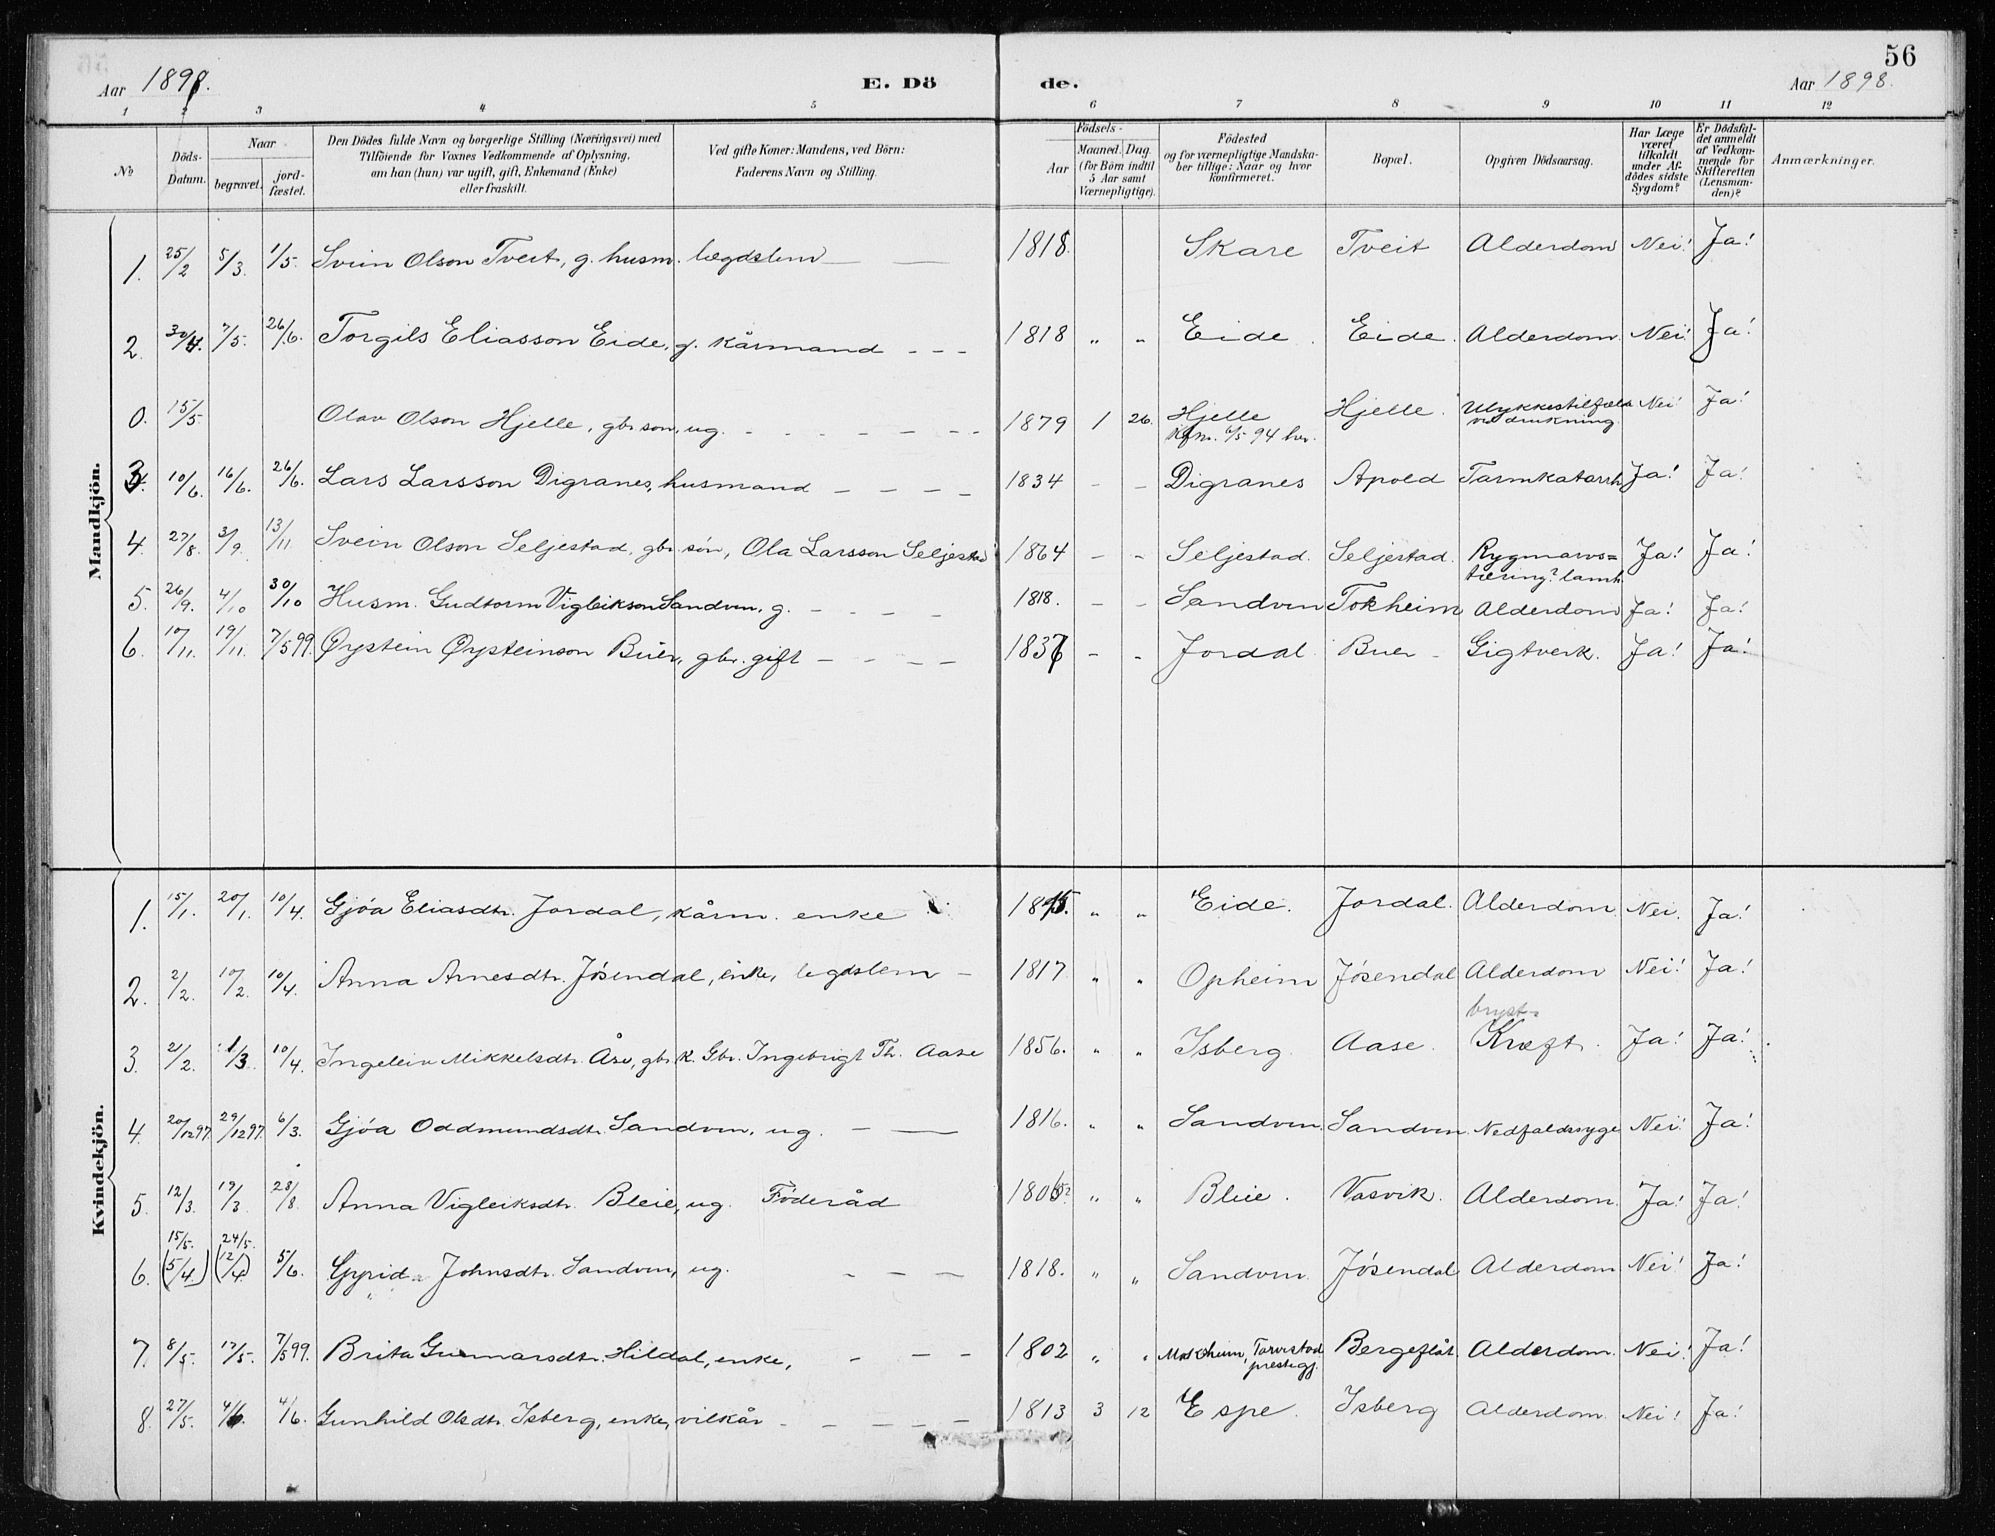 56
Aar 1898. E. Dö de. Aar 1898.
1 2 3 4 5 6 7 8 9 10 11 12
No
Döds-Datum.
Naar
begravet.
jord-fæstet.
Den Dödes fulde Navn og borgerlige Stilling (Næringsvei) med
Tilföiende for Voxnes Vedkommende af Oplysning,
om han (hun) var ugift, gift, Enkemand (Enke)
eller fraskilt.
Ved gifte Koner: Mandens, ved Börn:
Faderens Navn og Stilling.
Födsels-
Aar
Maaned. Dag.
(for Börn indtil
5 Aar samt
Værnepligtige).
Födested
og for værnepligtige Mandska-
ber tillige: Naar og hvor
konfirmeret.
Bopæl.
Opgiven Dödsaarsag.
Har Læge
været
tilkaldt
under Af-
dödes sidste
Sygdom?
Er Dödsfal-
det anmeldt
af Vedkom-
mende for
Skifteretten
(Lensman-
den)?
Anmærkninger.
Mandkjön.
1. 25/2 5/3. 1/5. Svein Olson Tveit, g. husm. lægdslem — — 1818. Skare Tveit Alderdom Nei! Ja!
2. 30/4. 7/5. 26/6. Torgils Eliasson Eide, g. kårmand - - - 1818 " " Eide. Eide. Alderdom. Nei! Ja!
0. 15/5. Olav Olson Hjelle, gbr. son, ug. - - - - - - 1879 1 26. Hjelle Hjelle. Ulykkestilfælde Nei! Ja!
Kfm. 6/5 94 her. ved drukning
3. 10/6. 16/6. 26/6. Lars Larsson Digranes, husmand - - - - 1834 - - Digranes Apold Tarmkatarrh Ja! Ja!
4. 27/8. 3/9. 13/11 Svein Olson Seljestad, gbr. søn, Ola Larsson Seljestad 1864 - - Seljestad. Seljestad. Rygmarvs= Ja! Ja!
tæring? lamh.
5. 26/9. 4/10 30/10 Husm. Gudtorm Vigleikson Sandven, g. - - - - 1818. - - Sandven Tokheim Alderdom Ja! Ja!
6. 10/11. 19/11. 7/5 99. Øystein Øysteinson Buer, gbr. gift - - - - 1837 - - Jordal Buer - Gigtverk. Ja! Ja!
Kvindekjön.
1. 15/1. 20/1. 10/4. Gjøa Eliasdtr. Jordal, kårm. enke 1815. " " Eide. Jordal. Alderdom. Nei. Ja!
2. 2/2. 10/2. 10/4. Anna Arnesdtr. Jøsendal, enke, legdslem - 1817 " " Opheim Jøsendal Alderdom Nei! Ja!
bryst-
3. 21/2. 1/3. 10/4. Ingeleiv Mikkelsdtr. Åse, gbr. k. Gbr. Ingebrigt Th. Aase 1856. " " Isberg. Aase. Kræft. Ja! Ja!
4. 20/12 97. 29/12 97. 6/3. Gjøa Oddmundsdtr. Sandven, ug. - — 1816. " " Sandven. Sandven Nedfaldssyge Nei! Ja!
5. 12/3. 19/3 28/8. Anna Vigleiksdtr. Bleie, ug. Føderåd 1805. " " Bleie. Vasvik. Alderdom. Ja! Ja!
15/5. 24/5.
6. (5/4) (12/4) 5/6. Gyrid Johnsdtr. Sandven, ug. - - - 1818. " " Sandven Jøsendal Alderdom Nei! Ja!
7. 8/5. 17/5. 7/5 99. Brita Gunnarsdtr. Hildal, enke, - - - 1802 " " Bergeflåt. Alderdom. Nei! Ja!
prestegj.
8. 27/5. 4/6 4/6. Gunhild Olsdtr. Isberg, enke, vilkår - - - - - 1813 3 12 Espe. Isberg Alderdom. Nei! Ja!